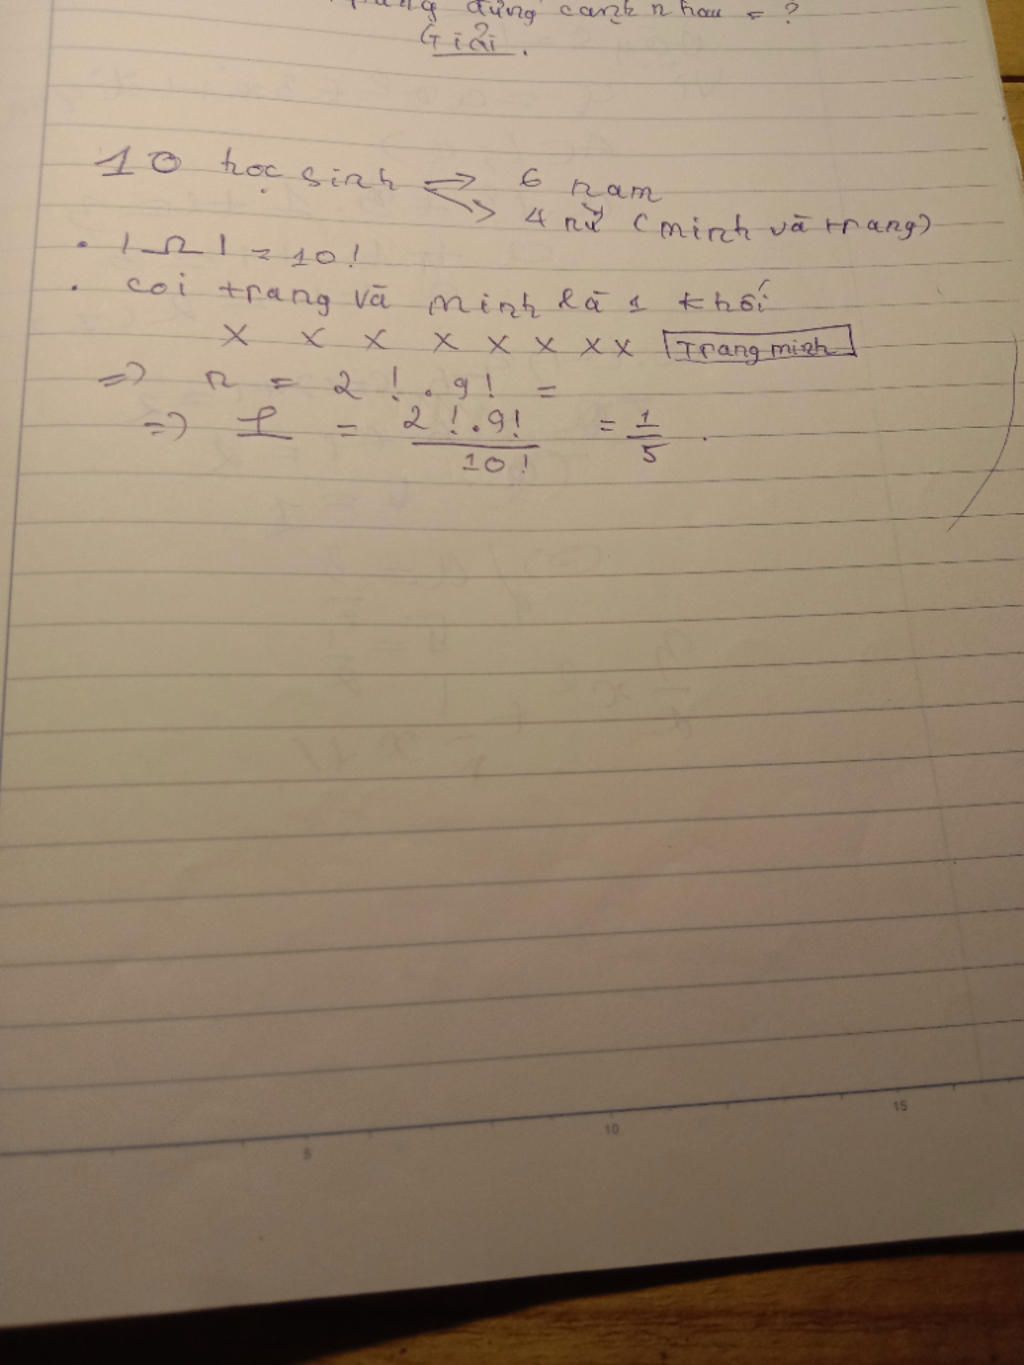 đứng cạnh nhau = ?
Giải.
10 học sinh => 6 nam
=> 4 nữ (minh và trang)
. |Ω| = 10!
. coi trang và minh là 1 khối
x x x x x x x x Trang minh
=> n = 2! . 9! =
=> P = 2!.9! / 10! = 1/5 .
5 10 15